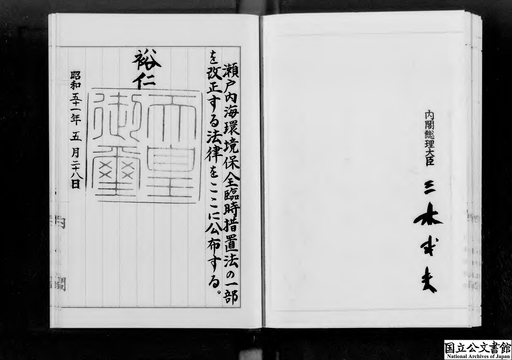 瀬戸内海環境保全臨時措置法の一部
を改正する法律をここに公布する。
裕仁
天皇
御璽
昭和五十一年五月二十八日
内閣総理大臣 三木武夫
国立公文書館
National Archives of Japan